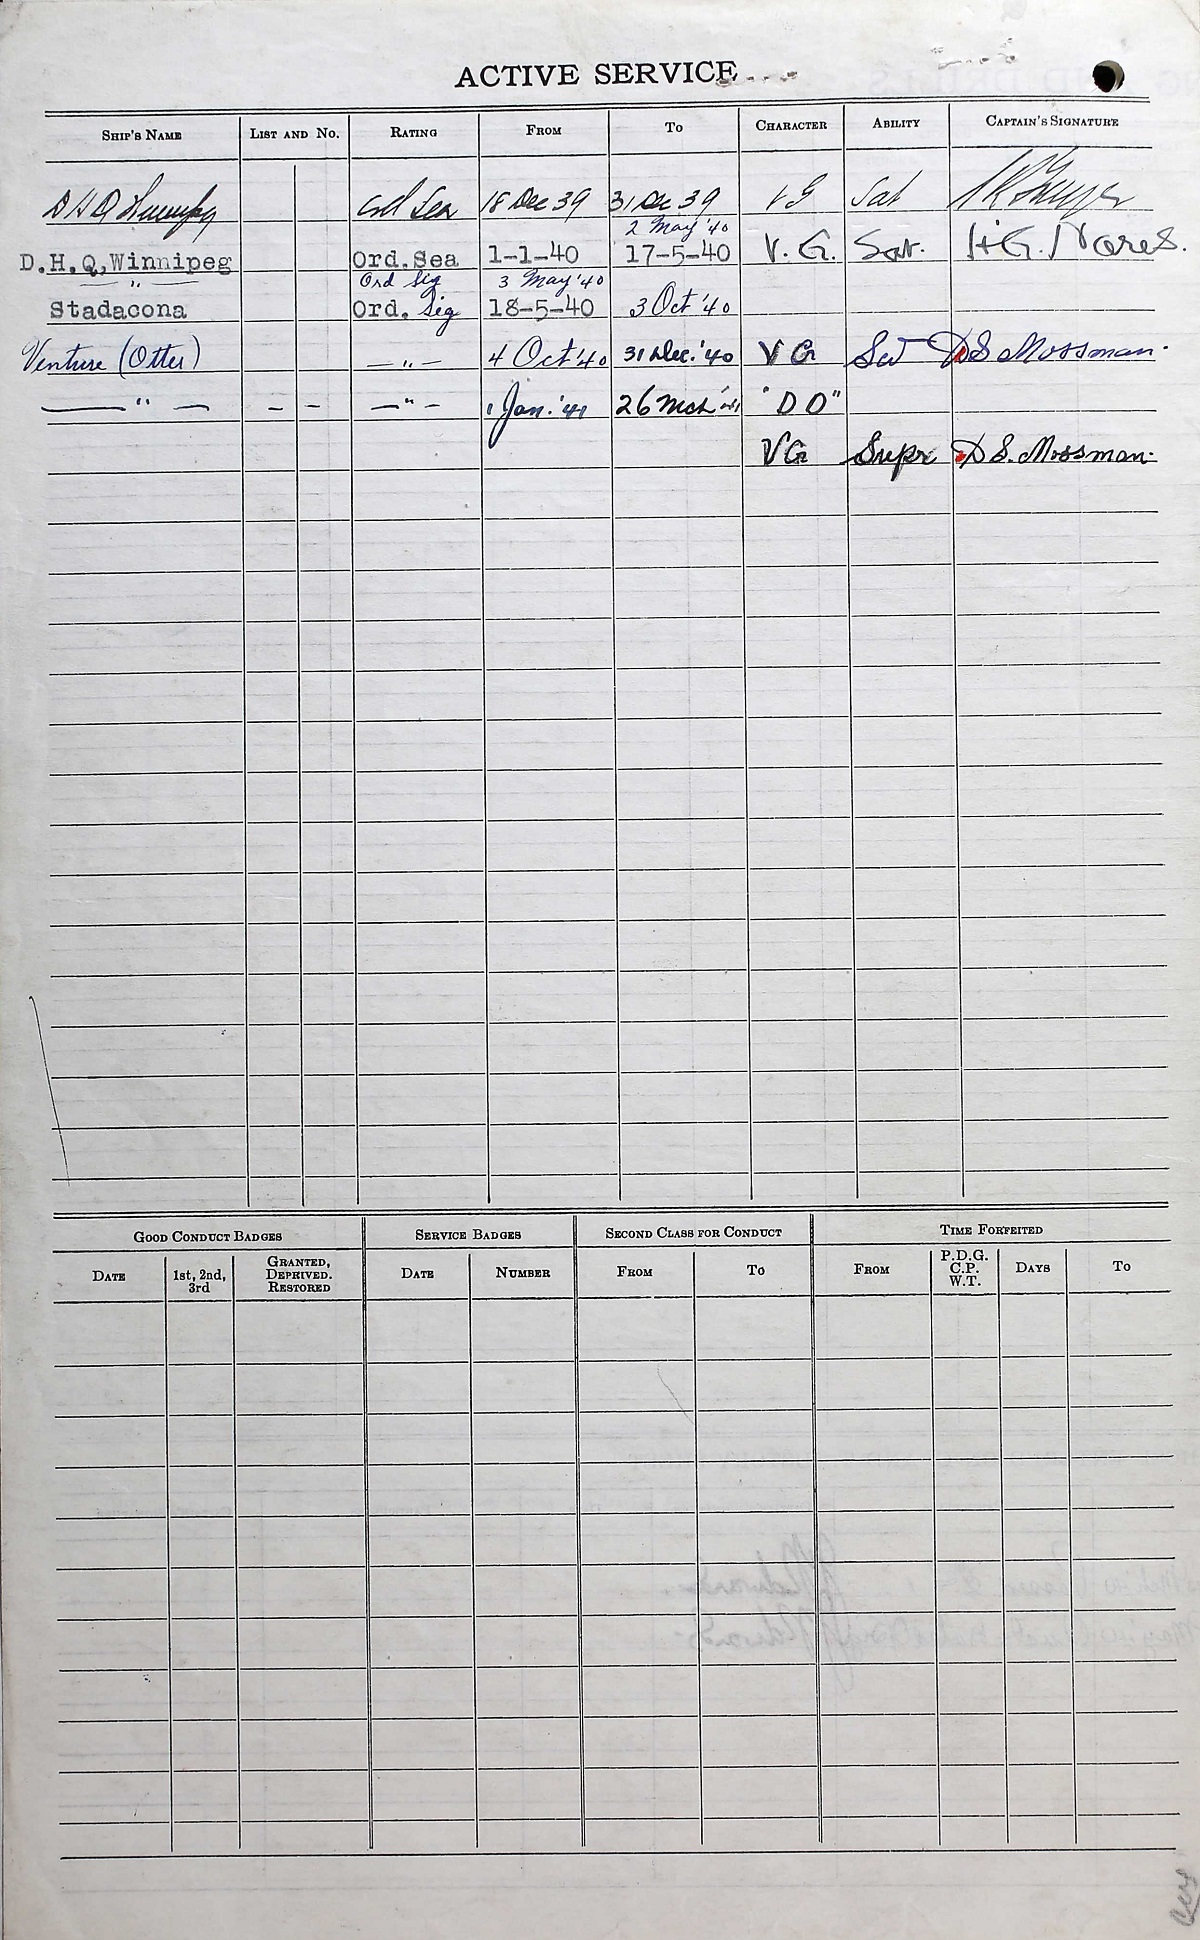 ACTIVE SERVICE
SHIP'S NAME LIST AND NO. RATING FROM TO CHARACTER ABILITY CAPTAIN'S SIGNATURE
D H Q Winnipeg Ord Sea 18 Dec 39 31 Dec 39 VG Sat
2 May '40
D.H.Q. Winnipeg Ord.Sea 1-1-40 17-5-40 V.G. Sat. H.G. Nares.
— " — Ord Sig 3 May '40
Stadacona Ord. Sig 18-5-40 3 Oct '40
Venture (Otter) — " — 4 Oct '40 31 Dec. '40 VG Sat D S Mossman.
— " — - - — " — 1 Jan. '41 26 Mch '41 "D D"
VG Supr D S. Mossman.
GOOD CONDUCT BADGES SERVICE BADGES SECOND CLASS FOR CONDUCT TIME FORFEITED
DATE 1st, 2nd, 3rd GRANTED, DEPRIVED. RESTORED DATE NUMBER FROM TO FROM P.D.G. C.P. W.T. DAYS TO